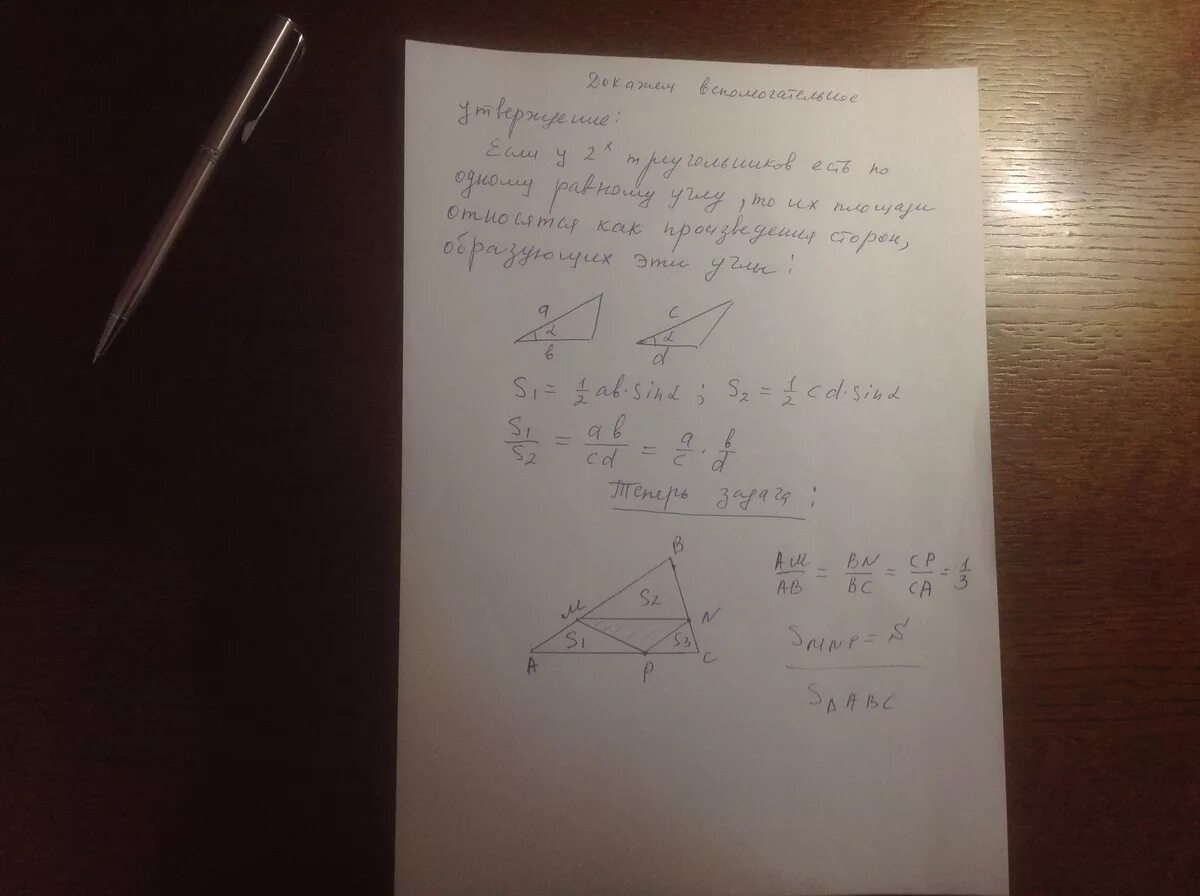 Докажем вспомогательное
утверждение:
Если у 2х треугольников есть по
одному равному углу, то их площади
относятся как произведения сторон,
образующих эти углы:
a α b
c α d
S1 = 1/2 ab·sinα ; S2 = 1/2 cd·sinα
S1/S2 = ab/cd = a/c · b/d
Теперь задача:
B
M S2 N
S1 S3
A P C
AM/AB = BN/BC = CP/CA = 1/3
SMNP = S
S△ABC